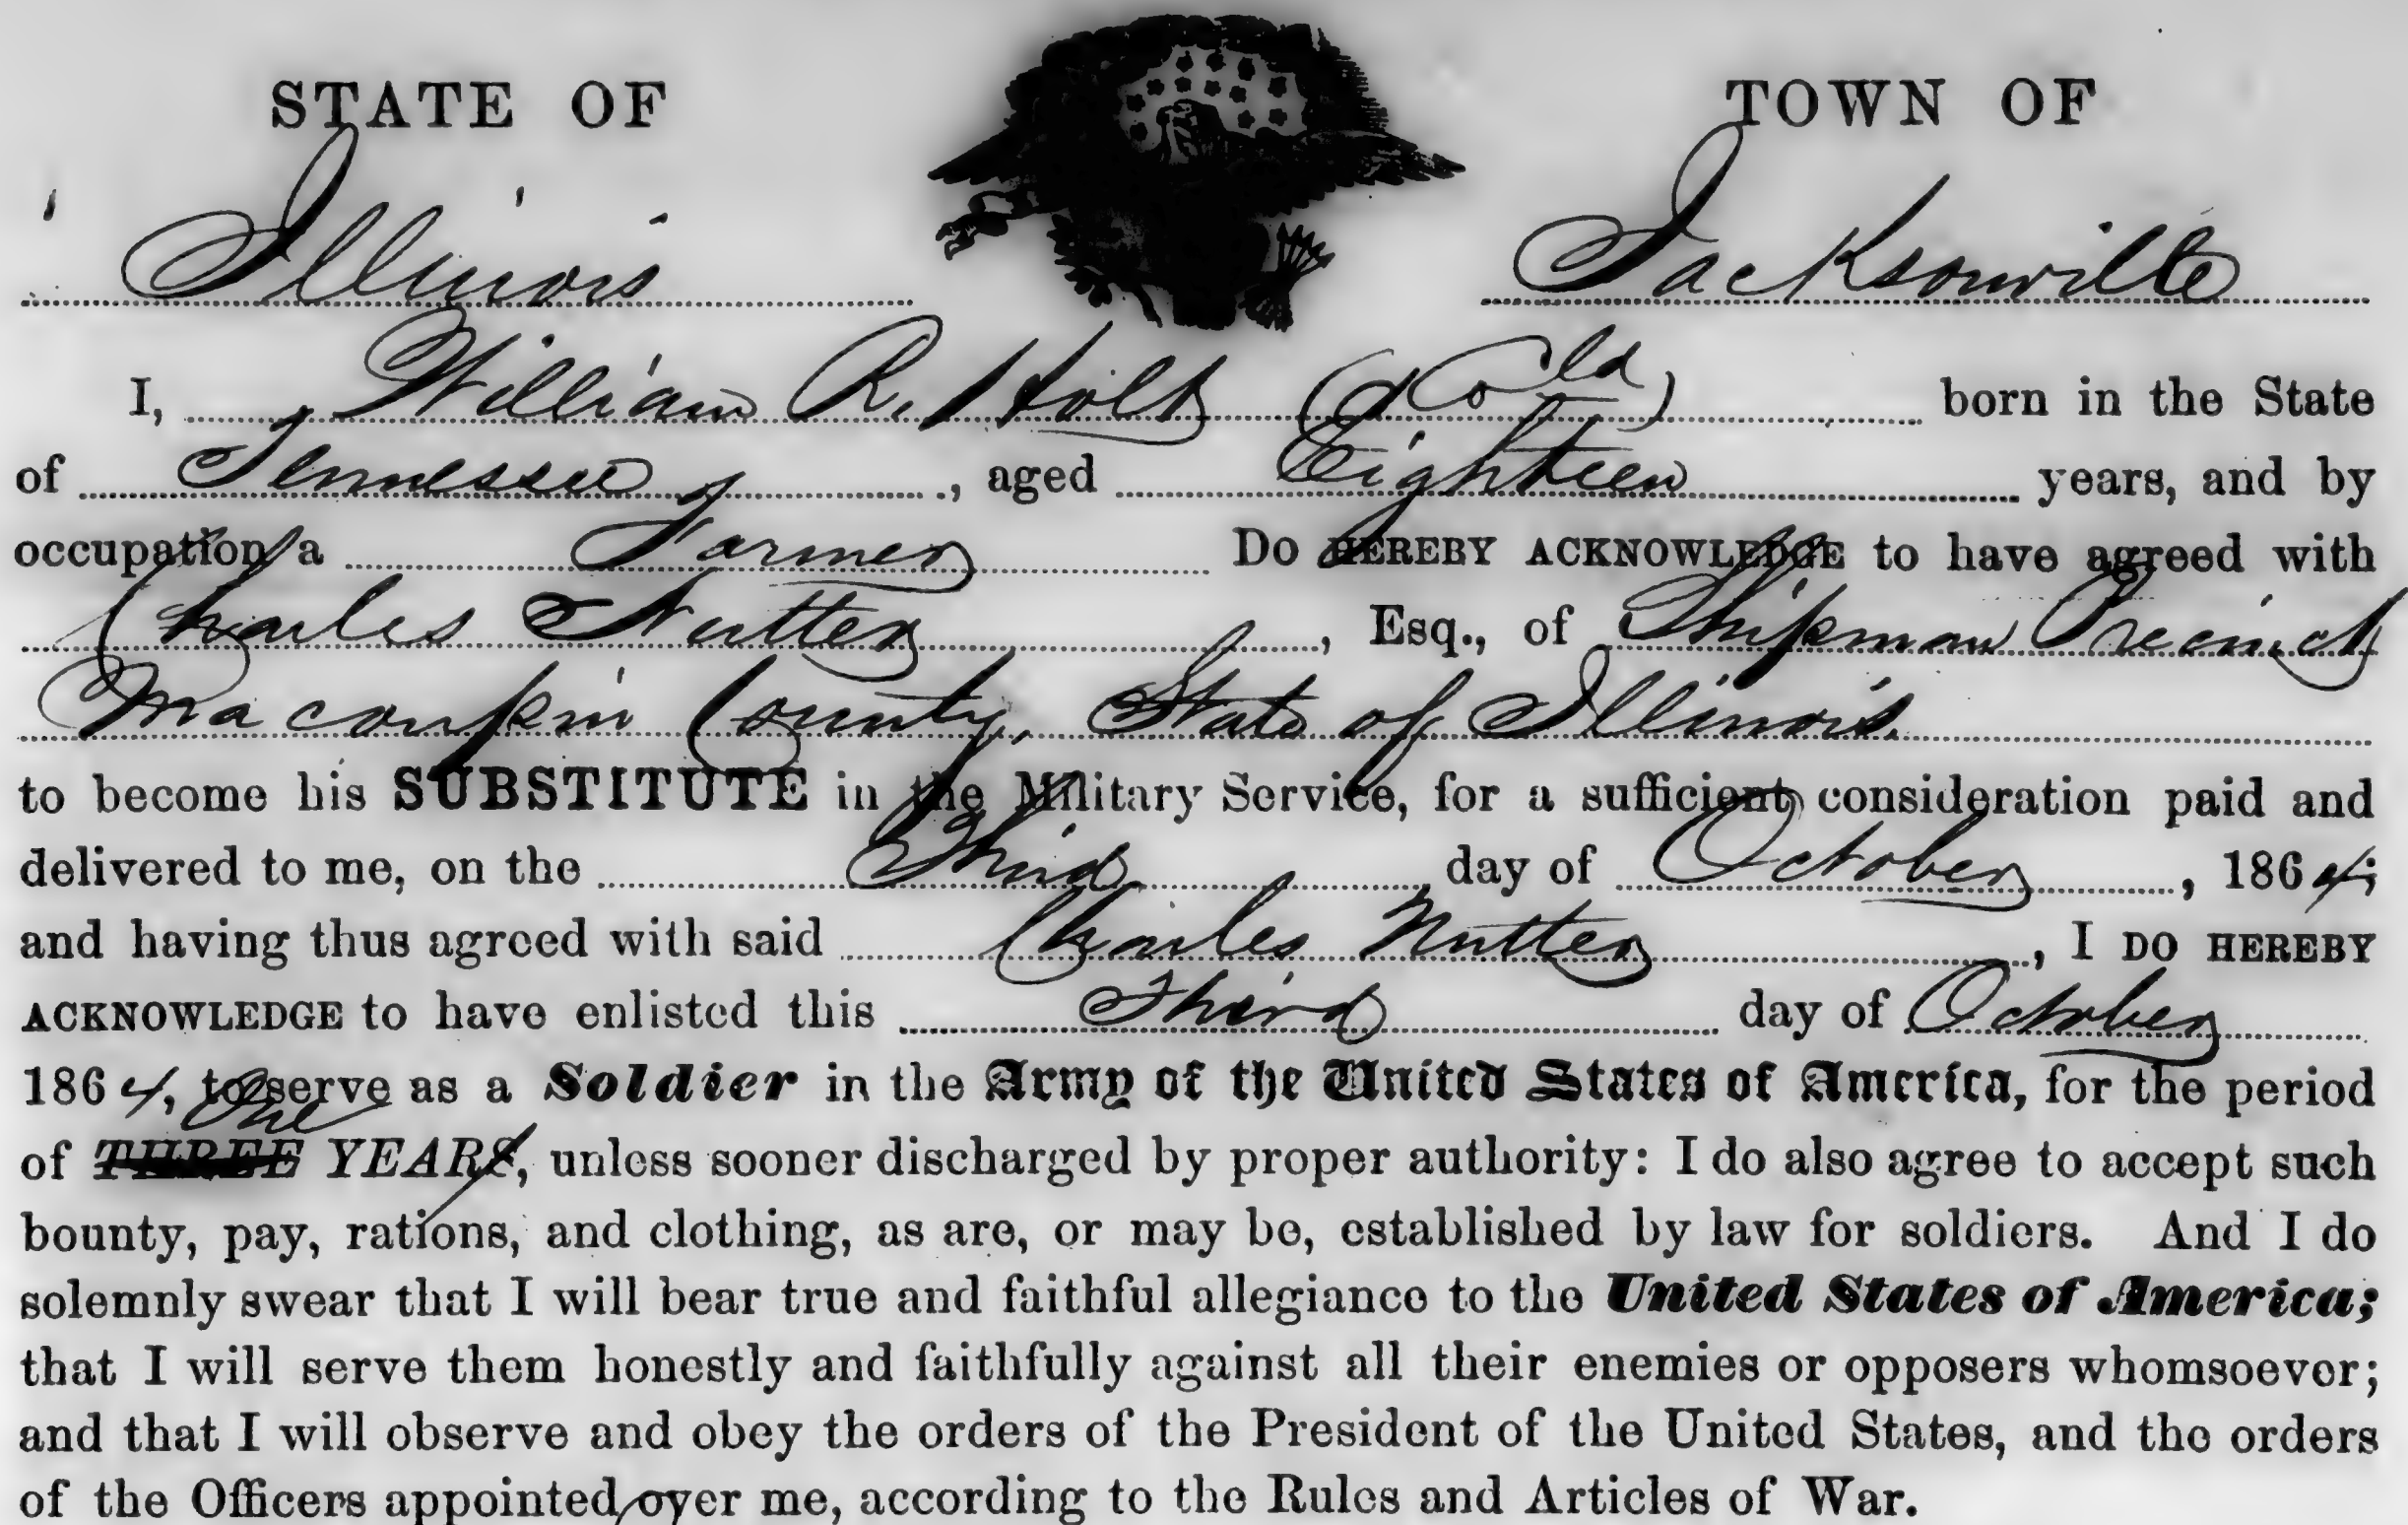 STATE OF TOWN OF
Illinois Jacksonville
I, William R. Holt ( Cold) born in the State
of Tennessee, aged Eighteen years, and by
occupation a Farmer Do HEREBY ACKNOWLEDGE to have agreed with
Charles Nutter, Esq., of Shipman Precinct
Macoupin County, State of Illinois.
to become his SUBSTITUTE in the Military Service, for a sufficient consideration paid and
delivered to me, on the Third day of October, 1864;
and having thus agreed with said Charles Nutter, I DO HEREBY
ACKNOWLEDGE to have enlisted this Third day of October
1864, to serve as a Soldier in the Army of the United States of America, for the period
One
of THREE YEARS, unless sooner discharged by proper authority: I do also agree to accept such
bounty, pay, rations, and clothing, as are, or may be, established by law for soldiers. And I do
solemnly swear that I will bear true and faithful allegiance to the United States of America;
that I will serve them honestly and faithfully against all their enemies or opposers whomsoever;
and that I will observe and obey the orders of the President of the United States, and the orders
of the Officers appointed over me, according to the Rules and Articles of War.